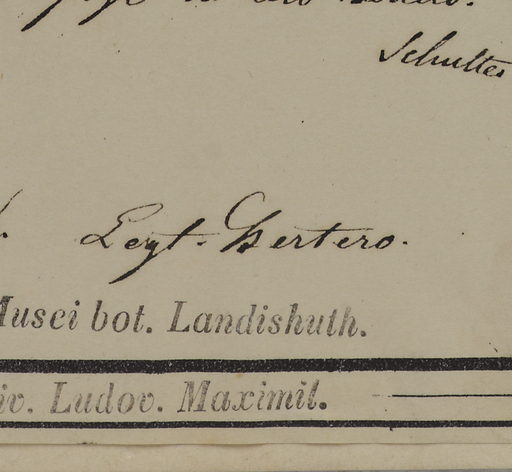 Schultes
Legt. Bertero.
Musei bot. Landishuth.
iv. Ludov. Maximil.